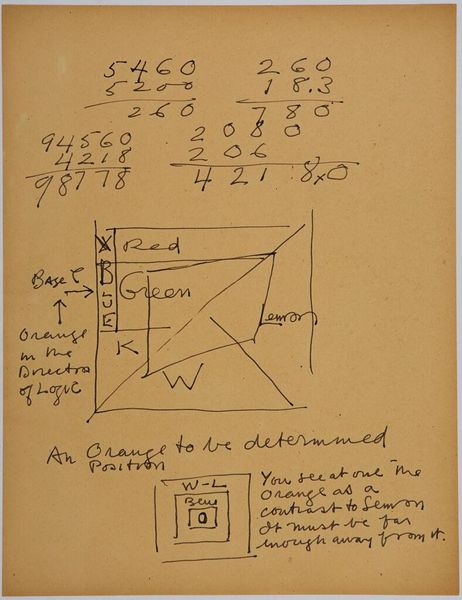 5460
5200
260
260
18.3
780
2080
206
421 8.0
94560
4218
98778
X Red
BLUE
Green
Base
Orange
in the
Direction
of Logic
K
W
Lemon
An Orange to be determined
Position
W-L
Blue
O
You see at one the
Orange as a
contrast to Lemon
It must be far
enough away from it.